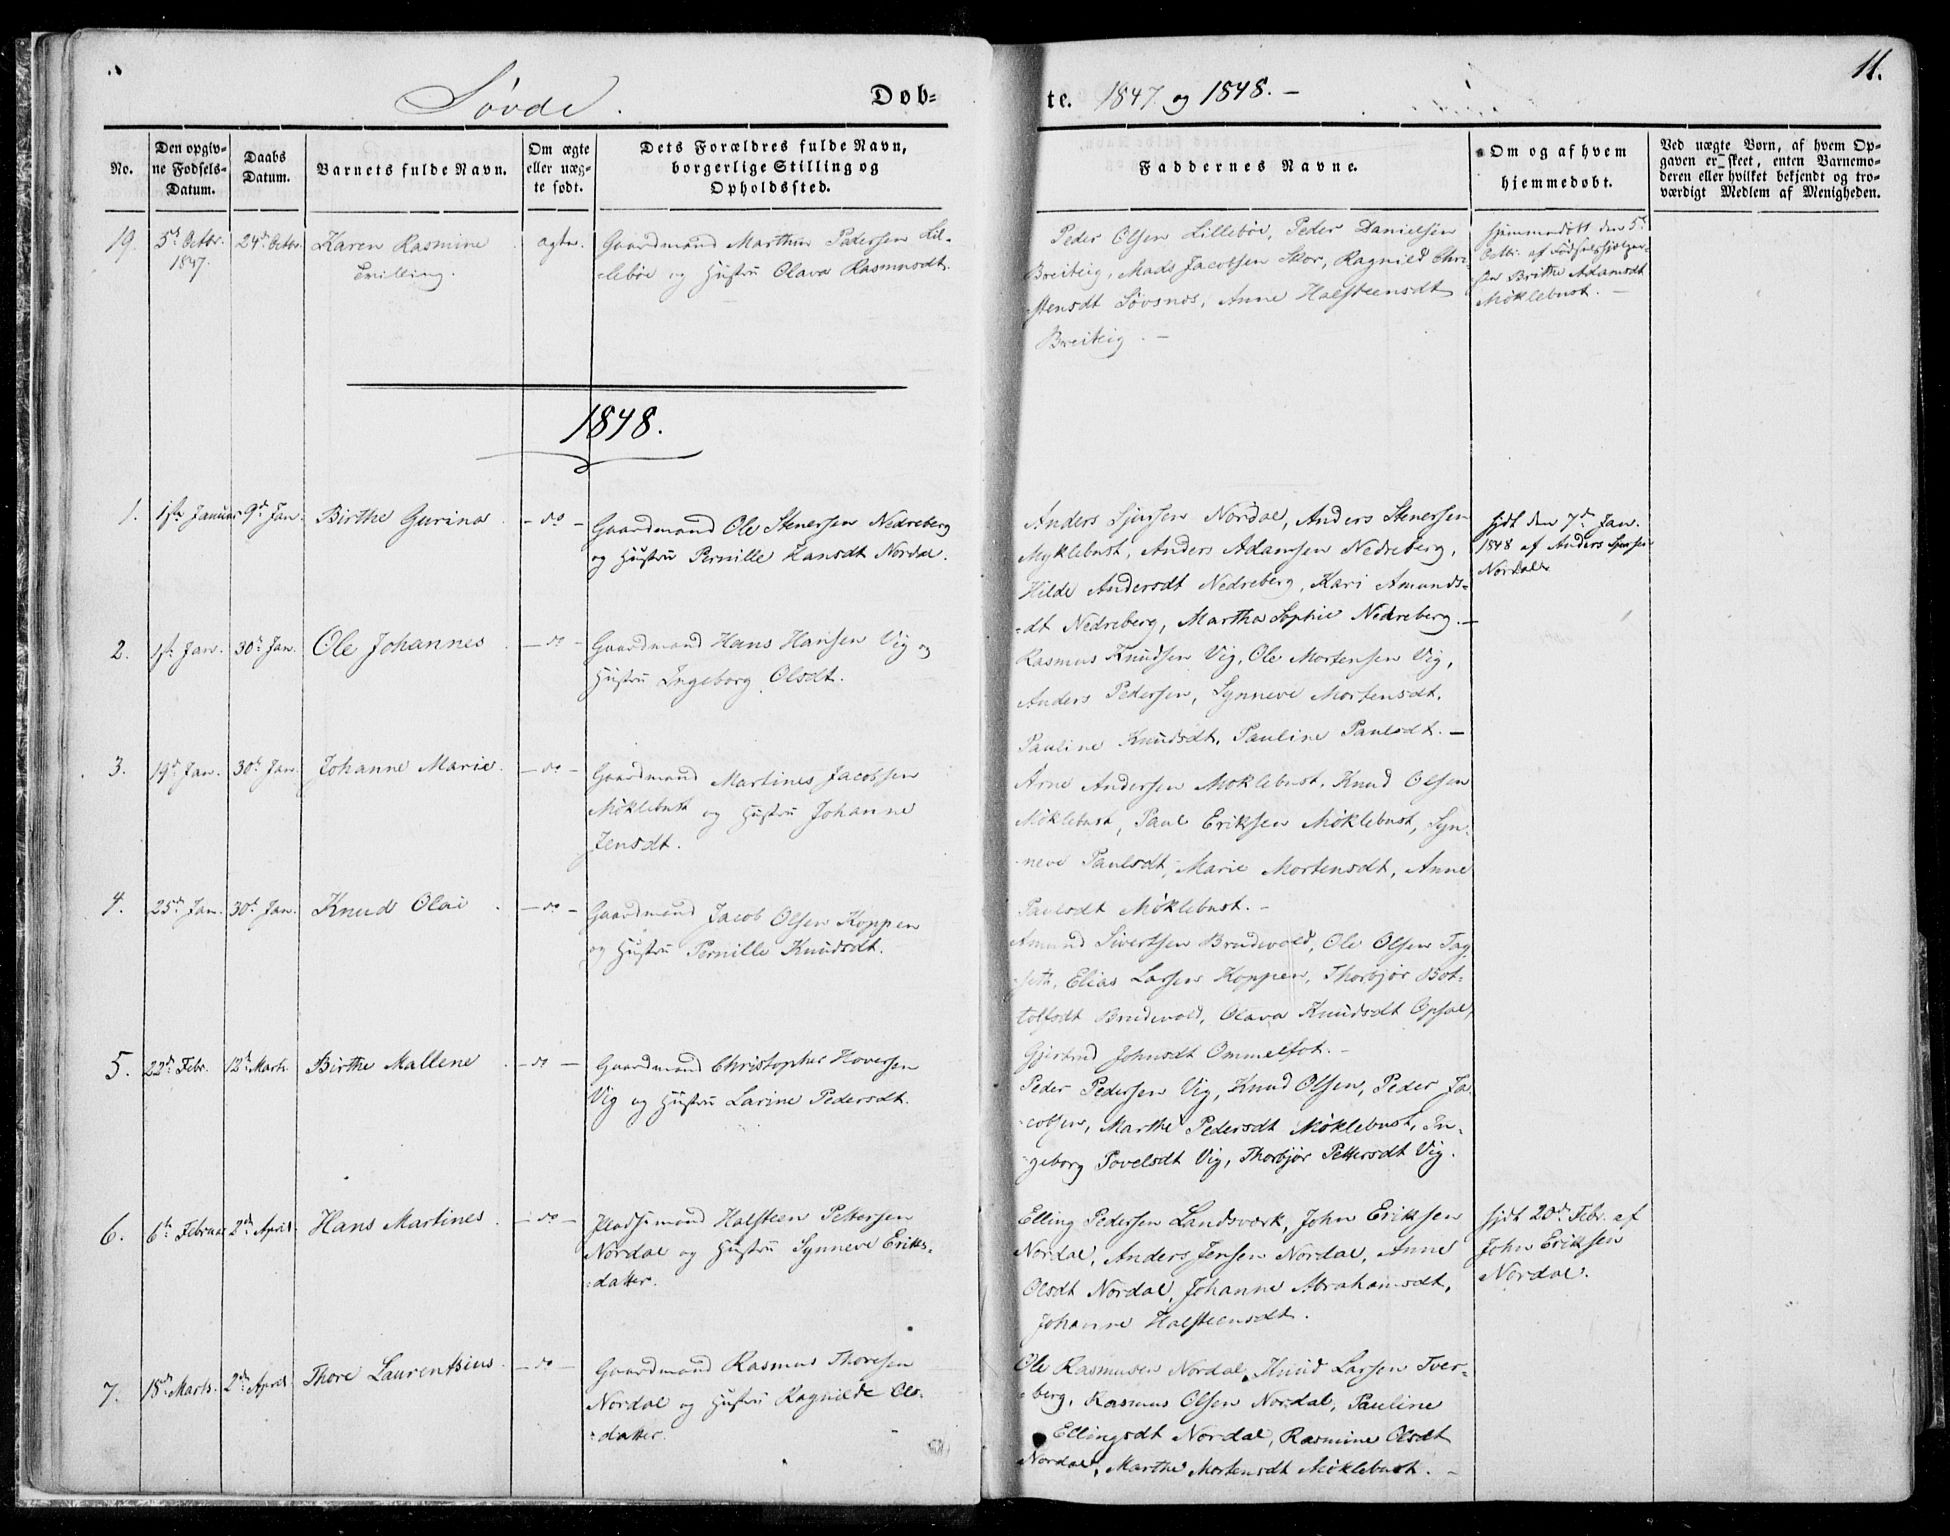 Søvde.
Døb-
te. 1847 og 1848. –
11.
No.
Den opgiv-
ne Fødsels-
Datum.
Daabs
Datum.
Barnets fulde Navn.
Om ægte
eller uæg-
te født.
Dets Forældres fulde Navn,
borgerlige Stilling og
Opholdssted.
Faddernes Navne.
Om og af hvem
hjemmedøbt.
Ved uægte Børn, af hvem Op-
gaven er skeet, enten Barnemo-
deren eller hvilket bekjendt og tro-
værdigt Medlem af Menigheden.
19. 5t Octbr. 24de Octbr Karen Rasmine ægte. Gaardmand Marthin Pedersen Lil-
1847. Tvilling. lebøe og Hustru Olava Rasmusdt.
Peder Olsen Lillebøe, Peder Danielsen
Breiteig, Mads Jacobsen Skor, Ragnild Chri-
stensdt Søvsnes, Anne Halsteensdt
Breiteig. –
Hjemmedøbt den 5t
Octbr. af Fødselshjelper-
sen Birthe Adamsdt
Møklebust. –
1848.
1. 1ste Januar 9de Jan. Birthe Gurina – do – Gaardmand Ole Stenersen Nedreberg
og Hustru Pernille Hansdt Nordal.
Anders Sjursen Nordal, Anders Stenersen
Myklebust, Anders Adamsen Nedreberg,
Hilde Andersdt Nedreberg, Kari Amunds-
dt Nedreberg, Martha Sophie Nedreberg. –
hjdt den 7de Jan.
1848 af Anders Sjursen
Nordal.
2. 1ste Jan. 30te Jan. Ole Johannes – do – Gaardmand Hans Hansen Vig og
Hustru Ingeborg Olsdt.
Rasmus Knudsen Vig, Ole Mortensen Vig,
Anders Pedersen, Synneve Mortensdt,
Pauline Knudsdt, Pauline Paulsdt. –
3. 19de Jan. 30te Jan. Johanne Marie. – do – Gaardmand Martines Jacobsen
Møklebust og Hustru Johanne
Jensdt.
Arne Andersen Moklebust, Knud Olsen
Møklebust, Paul Eriksen Møklebust, Syn-
neve Paulsdt, Marie Mortensdt, Anne
Paulsdt Møklebust. –
4. 25de Jan. 30te Jan. Knud Olai – do – Gaardmand Jacob Olsen Koppen
og Hustru Pernille Knudsdt.
Amund Sivertsen Brudevold, Ole Olsen Tag-
seth, Elias Larsen Koppen, Thorbjør Bot-
tolfsdt Brudevold, Olava Knudsdt Opsal,
Gjertrud Johnsdt Ommelfot. –
5. 22de Febr. 12te Marts. Birthe Mallene – do – Gaardmand Christopher Hoversen
Vig og Hustru Larine Pedersdt.
Peder Pedersen Vig, Knud Olsen, Peder Ja-
cobsen, Marthe Pedersdt Møklebust, In-
geborg Povelsdt Vig, Thorbjør Pettersdt Vig.
6. 6te Februar 2de April Hans Martines – do – Pladsemand Halsteen Pettersen
Nordal og Hustru Synneve Eriks-
datter.
Elling Pedersen Landsværk, John Eriksen
Nordal, Anders Jensen Nordal, Anne
Olsdt Nordal, Johanne Abrahamsdt,
Johanne Halsteensdt.
hjdt 20de Febr. af
John Eriksen
Nordal.
7. 18de Marts. 2de April Thore Laurentsius – do – Gaardmand Rasmus Thoresen
Nordal og Hustru Ragnilde Ols-
datter.
Ole Rasmusen Nordal, Knud Larsen Tver-
berg, Rasmus Olsen Nordal, Pauline
Ellingsdt Nordal, Rasmine Olsdt
Nordal, Marthe Mortensdt Møklebust. –